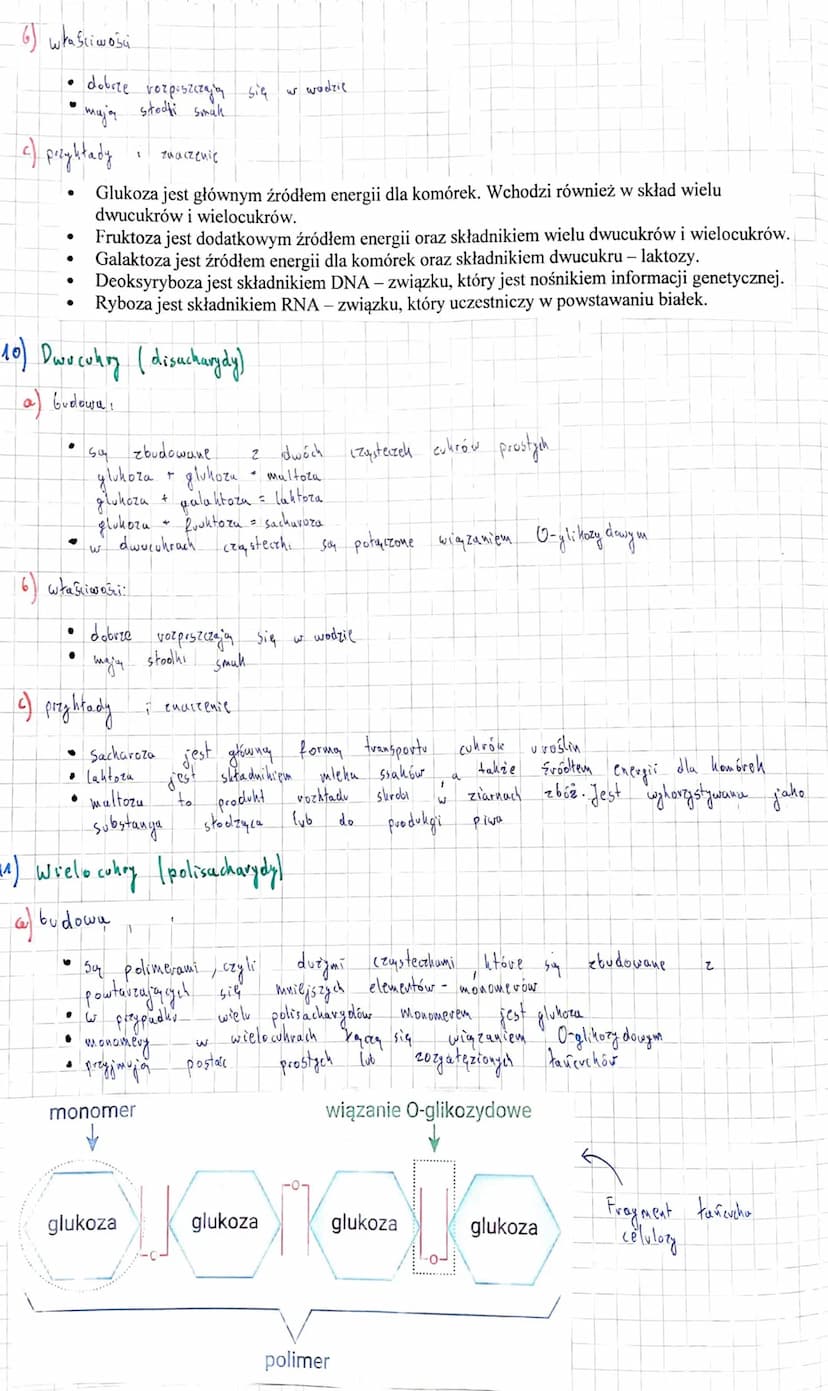 b) właściwości
• dobrze rozpuszczają się w wodzie
• mają słodki smak
c) przykłady i znaczenie
• Glukoza jest głównym źródłem energii dla komórek. Wchodzi również w skład wielu
dwucukrów i wielocukrów.
• Fruktoza jest dodatkowym źródłem energii oraz składnikiem wielu dwucukrów i wielocukrów.
• Galaktoza jest źródłem energii dla komórek oraz składnikiem dwucukru – laktozy.
• Deoksyryboza jest składnikiem DNA – związku, który jest nośnikiem informacji genetycznej.
• Ryboza jest składnikiem RNA – związku, który uczestniczy w powstawaniu białek.
10) Dwucukry (disacharydy)
a) budowa:
• są zbudowane z dwóch cząsteczek cukrów prostych
glukoza + glukoza = maltoza
glukoza + galaktoza = laktoza
glukoza + fruktoza = sacharoza
• w dwucukrach cząsteczki są połączone wiązaniem O-glikozydowym
b) właściwości:
• dobrze rozpuszczają się w wodzie
• mają słodki smak
c) przykłady i znaczenie
• Sacharoza jest główną formą transportu cukrów u roślin
• laktoza jest składnikiem mleka ssaków, a także źródłem energii dla komórek
• maltoza to produkt rozkładu skrobi w ziarnach zbóż. Jest wykorzystywana jako
substancja słodząca lub do produkcji piwa
11) Wielocukry (polisacharydy)
a) budowa
• są polimerami, czyli dużymi cząsteczkami, które są zbudowane z
powtarzających się mniejszych elementów - monomerów
• w przypadku wielu polisacharydów monomerem jest glukoza
• monomery w wielocukrach łączą się wiązaniem O-glikozydowym
• przyjmują postać prostych lub rozgałęzionych łańcuchów
monomer wiązanie O-glikozydowe
glukoza glukoza glukoza glukoza
Fragment łańcucha
celulozy
polimer